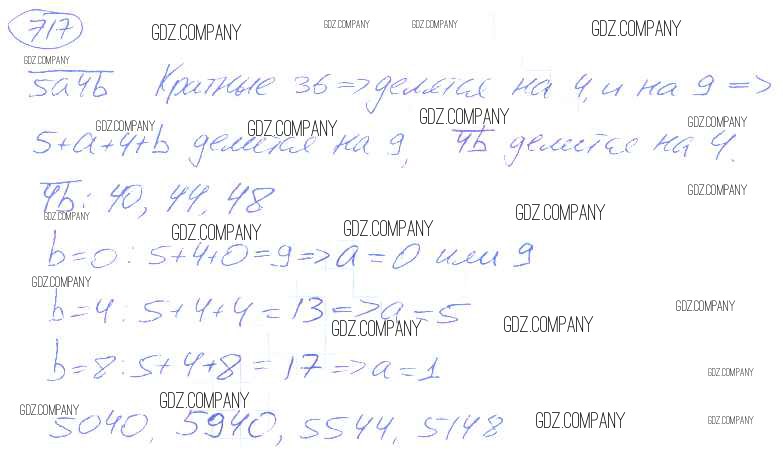 717
GDZ.COMPANY GDZ.COMPANY GDZ.COMPANY GDZ.COMPANY
GDZ.COMPANY
5a4b Кратные 36 => делятся на 4, и на 9 =>
GDZ.COMPANY GDZ.COMPANY GDZ.COMPANY GDZ.COMPANY
5+a+4+b делится на 9, 4b делится на 4.
4b: 40, 44, 48
GDZ.COMPANY
GDZ.COMPANY GDZ.COMPANY
GDZ.COMPANY GDZ.COMPANY
b=0: 5+4+0=9=>a=0 или 9
GDZ.COMPANY
b=4: 5+4+4=13=>a=5
GDZ.COMPANY
GDZ.COMPANY GDZ.COMPANY
b=8: 5+4+8=17=>a=1
GDZ.COMPANY
GDZ.COMPANY GDZ.COMPANY
5040, 5940, 5544, 5148
GDZ.COMPANY GDZ.COMPANY